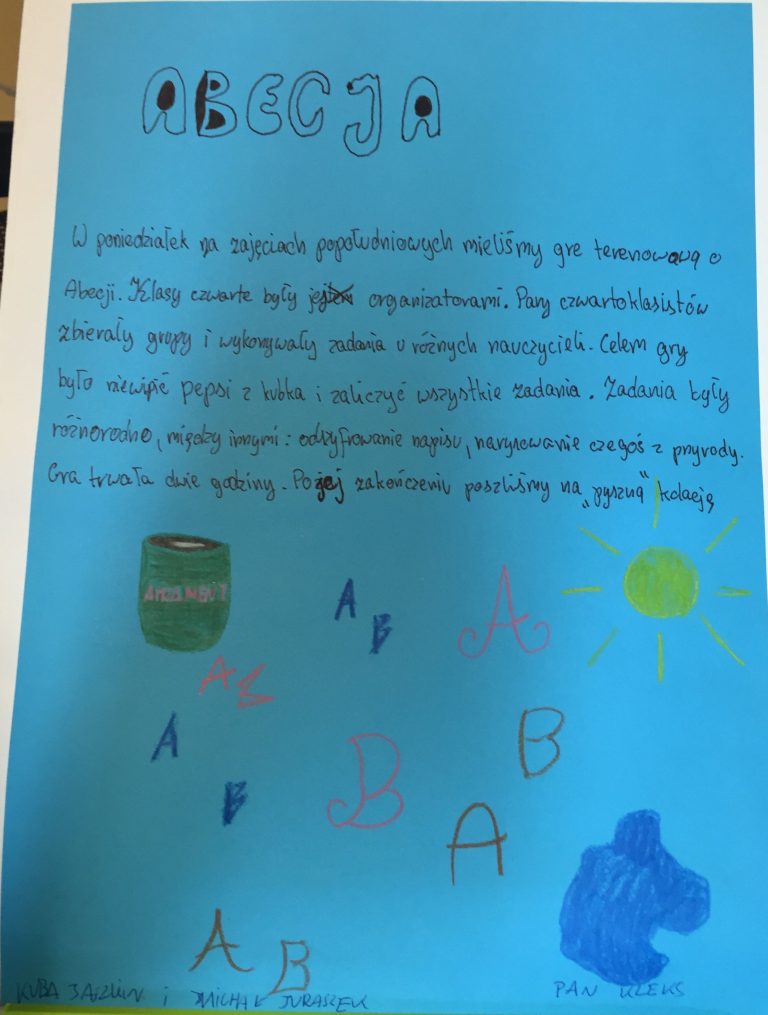 ABECJA
W poniedziałek na zajęciach popołudniowych mieliśmy gre terenową o
Abecji. Klasy czwarte były organizatorami. Pary czwartoklasistów
zbierały grupy i wykonywały zadania u różnych nauczycieli. Celem gry
było niewipić pepsi z kubka i zaliczyć wszystkie zadania. Zadania były
różnorodne, między innymi: odszyfrowanie napisu, narysowanie czegoś z przyrody.
Gra trwała dwie godziny. Po jej zakończeniu poszliśmy na „pyszną" kolację
A
B
A
A B
A
B
B
B
A
A B
KUBA i MICHAŁ JURASZEK
PAN KLEKS